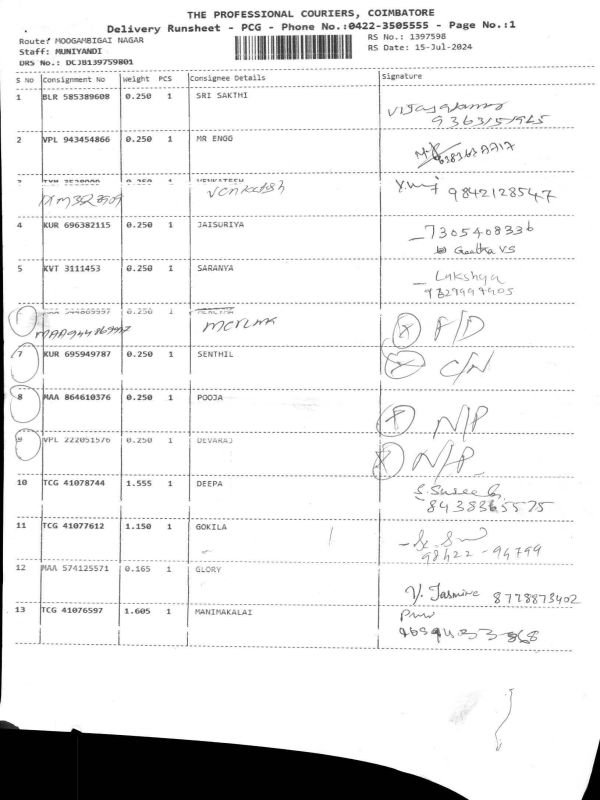 THE PROFESSIONAL COURIERS, COIMBATORE
Delivery Runsheet - PCG - Phone No.:0422-3505555 - Page No.:1
Route: MOOGAMBIGAI NAGAR
RS No.: 1397598
Staff: MUNIYANDI
RS Date: 15-Jul-2024
DRS No.: DCJB139759801
S No Consignment No Weight PCS Consignee Details Signature
1 BLR 585389608 0.250 1 SRI SAKTHI
2 VPL 943454866 0.250 1 MR ENGG
3 0.250 1 VENKATESH
Venkatesh 9842128547
4 KUR 696382115 0.250 1 JAISURIYA
7305408336
Geetha VS
5 KVT 3111453 0.250 1 SARANYA
Lakshya
MAA 944869997 0.250 1
MAA944869997
F/D
7 KUR 695949787 0.250 1 SENTHIL
C/N
8 MAA 864610376 0.250 1 POOJA
N/P
9 VPL 222051576 0.250 1 DEVARAJ
N/P
10 TCG 41078744 1.555 1 DEEPA
8438365575
11 TCG 41077612 1.150 1 GOKILA
98422-94799
12 MAA 574125571 0.165 1 GLORY
V. Jasmine 8778873402
13 TCG 41076597 1.605 1 MANIMAKALAI